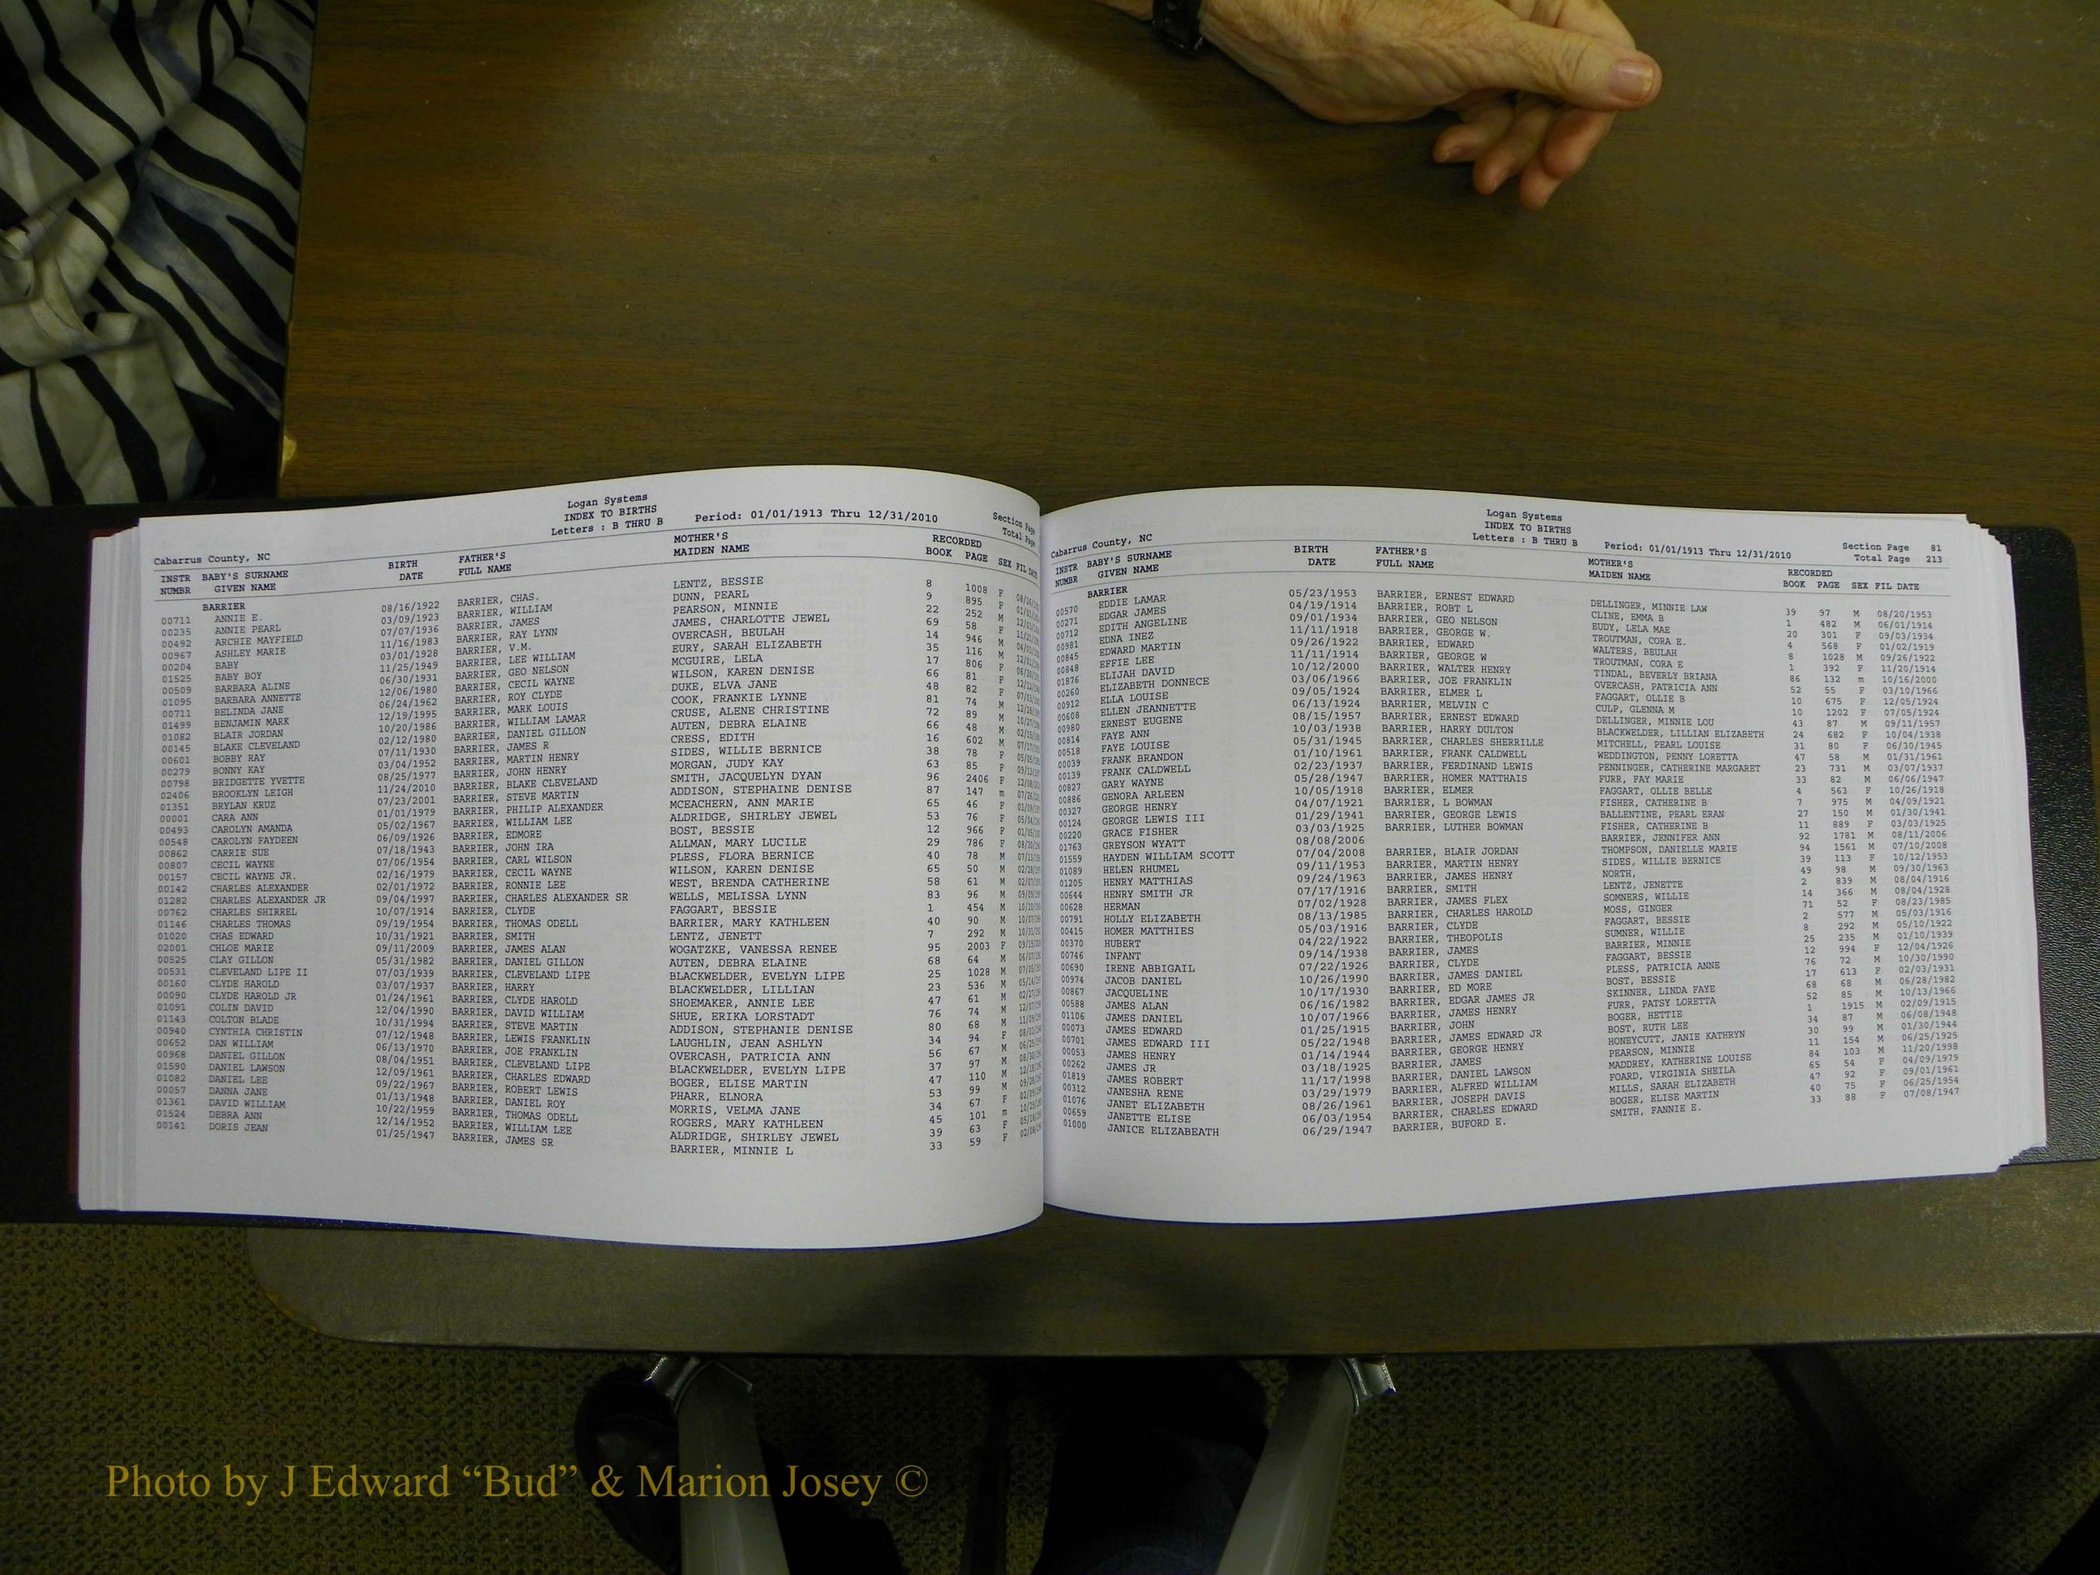 Logan Systems
INDEX TO BIRTHS
Letters : B THRU B Period: 01/01/1913 Thru 12/31/2010 Section Page
Total Page
Cabarrus County, NC
INSTR BABY'S SURNAME BIRTH FATHER'S MOTHER'S RECORDED
NUMBR GIVEN NAME DATE FULL NAME MAIDEN NAME BOOK PAGE SEX FIL DATE
BARRIER
00711 ANNIE E. 08/16/1922 BARRIER, CHAS. LENTZ, BESSIE 8 1008 F
00235 ANNIE PEARL 03/09/1923 BARRIER, WILLIAM DUNN, PEARL 9 895 F
00492 ARCHIE MAYFIELD 07/07/1936 BARRIER, JAMES PEARSON, MINNIE 22 252 M
00967 ASHLEY MARIE 11/16/1983 BARRIER, RAY LYNN JAMES, CHARLOTTE JEWEL 69 58 F
00204 BABY 03/01/1928 BARRIER, V.M. OVERCASH, BEULAH 14 946 M
01525 BABY BOY 11/25/1949 BARRIER, LEE WILLIAM EURY, SARAH ELIZABETH 35 116 M
00509 BARBARA ALINE 06/30/1931 BARRIER, GEO NELSON MCGUIRE, LELA 17 806 F
01095 BARBARA ANNETTE 12/06/1980 BARRIER, CECIL WAYNE WILSON, KAREN DENISE 66 81 F
00711 BELINDA JANE 06/24/1962 BARRIER, ROY CLYDE DUKE, ELVA JANE 48 82 F
01499 BENJAMIN MARK 12/19/1995 BARRIER, MARK LOUIS COOK, FRANKIE LYNNE 81 74 M
01082 BLAIR JORDAN 10/20/1986 BARRIER, WILLIAM LAMAR CRUSE, ALENE CHRISTINE 72 89 M
00145 BLAKE CLEVELAND 02/12/1980 BARRIER, DANIEL GILLON AUTEN, DEBRA ELAINE 66 48 M
00601 BOBBY RAY 07/11/1930 BARRIER, JAMES R CRESS, EDITH 16 602 M
00279 BONNY KAY 03/04/1952 BARRIER, MARTIN HENRY SIDES, WILLIE BERNICE 38 78 F
00798 BRIDGETTE YVETTE 08/25/1977 BARRIER, JOHN HENRY MORGAN, JUDY KAY 63 85 F
02406 BROOKLYN LEIGH 11/24/2010 BARRIER, BLAKE CLEVELAND SMITH, JACQUELYN DYAN 96 2406 F
01351 BRYLAN KRUZ 07/23/2001 BARRIER, STEVE MARTIN ADDISON, STEPHAINE DENISE 87 147 m
00001 CARA ANN 01/01/1979 BARRIER, PHILIP ALEXANDER MCEACHERN, ANN MARIE 65 46 F
00493 CAROLYN AMANDA 05/02/1967 BARRIER, WILLIAM LEE ALDRIDGE, SHIRLEY JEWEL 53 76 F
00548 CAROLYN FAYDEEN 06/09/1926 BARRIER, EDMORE BOST, BESSIE 12 966 F
00862 CARRIE SUE 07/18/1943 BARRIER, JOHN IRA ALLMAN, MARY LUCILE 29 786 F
00807 CECIL WAYNE 07/06/1954 BARRIER, CARL WILSON PLESS, FLORA BERNICE 40 78 M
00157 CECIL WAYNE JR. 02/16/1979 BARRIER, CECIL WAYNE WILSON, KAREN DENISE 65 50 M
00142 CHARLES ALEXANDER 02/01/1972 BARRIER, RONNIE LEE WEST, BRENDA CATHERINE 58 61 M
01282 CHARLES ALEXANDER JR 09/04/1997 BARRIER, CHARLES ALEXANDER SR WELLS, MELISSA LYNN 83 96 M
00762 CHARLES SHIRREL 10/07/1914 BARRIER, CLYDE FAGGART, BESSIE 1 454 M
01146 CHARLES THOMAS 09/19/1954 BARRIER, THOMAS ODELL BARRIER, MARY KATHLEEN 40 90 M
01020 CHAS EDWARD 10/31/1921 BARRIER, SMITH LENTZ, JENETT 7 292 M
02001 CHLOE MARIE 09/11/2009 BARRIER, JAMES ALAN WOGATZKE, VANESSA RENEE 95 2003 F
00525 CLAY GILLON 05/31/1982 BARRIER, DANIEL GILLON AUTEN, DEBRA ELAINE 68 64 M
00531 CLEVELAND LIPE II 07/03/1939 BARRIER, CLEVELAND LIPE BLACKWELDER, EVELYN LIPE 25 1028 M
00160 CLYDE HAROLD 03/07/1937 BARRIER, HARRY BLACKWELDER, LILLIAN 23 536 M
00090 CLYDE HAROLD JR 01/24/1961 BARRIER, CLYDE HAROLD SHOEMAKER, ANNIE LEE 47 61 M
01091 COLIN DAVID 12/04/1990 BARRIER, DAVID WILLIAM SHUE, ERIKA LORSTADT 76 74 M
01143 COLTON BLADE 10/31/1994 BARRIER, STEVE MARTIN ADDISON, STEPHANIE DENISE 80 68 M
00940 CYNTHIA CHRISTIN 07/12/1948 BARRIER, LEWIS FRANKLIN LAUGHLIN, JEAN ASHLYN 34 94 F
00652 DAN WILLIAM 06/13/1970 BARRIER, JOE FRANKLIN OVERCASH, PATRICIA ANN 56 67 M
00968 DANIEL GILLON 08/04/1951 BARRIER, CLEVELAND LIPE BLACKWELDER, EVELYN LIPE 37 97 M
01590 DANIEL LAWSON 12/09/1961 BARRIER, CHARLES EDWARD BOGER, ELISE MARTIN 47 110 M
01082 DANIEL LEE 09/22/1967 BARRIER, ROBERT LEWIS PHARR, ELNORA 53 99 M
00057 DANNA JANE 01/13/1948 BARRIER, DANIEL ROY MORRIS, VELMA JANE 34 67 F
01361 DAVID WILLIAM 10/22/1959 BARRIER, THOMAS ODELL ROGERS, MARY KATHLEEN 45 101 m
01524 DEBRA ANN 12/14/1952 BARRIER, WILLIAM LEE ALDRIDGE, SHIRLEY JEWEL 39 63 F
00141 DORIS JEAN 01/25/1947 BARRIER, JAMES SR BARRIER, MINNIE L 33 59 F
Logan Systems
INDEX TO BIRTHS
Letters : B THRU B Period: 01/01/1913 Thru 12/31/2010 Section Page 81
Total Page 213
Cabarrus County, NC
INSTR BABY'S SURNAME BIRTH FATHER'S MOTHER'S RECORDED
NUMBR GIVEN NAME DATE FULL NAME MAIDEN NAME BOOK PAGE SEX FIL DATE
BARRIER
00570 EDDIE LAMAR 05/23/1953 BARRIER, ERNEST EDWARD DELLINGER, MINNIE LAW 39 97 M 08/20/1953
00271 EDGAR JAMES 04/19/1914 BARRIER, ROBT L CLINE, EMMA B 1 482 M 06/01/1914
00712 EDITH ANGELINE 09/01/1934 BARRIER, GEO NELSON EUDY, LELA MAE 20 301 F 09/03/1934
00981 EDNA INEZ 11/11/1918 BARRIER, GEORGE W. TROUTMAN, CORA E. 4 568 F 01/02/1919
00845 EDWARD MARTIN 09/26/1922 BARRIER, EDWARD WALTERS, BEULAH 8 1028 M 09/26/1922
00848 EFFIE LEE 11/11/1914 BARRIER, GEORGE W TROUTMAN, CORA E 1 392 F 11/20/1914
01876 ELIJAH DAVID 10/12/2000 BARRIER, WALTER HENRY TINDAL, BEVERLY BRIANA 86 132 m 10/16/2000
00260 ELIZABETH DONNECE 03/06/1966 BARRIER, JOE FRANKLIN OVERCASH, PATRICIA ANN 52 55 F 03/10/1966
00912 ELLA LOUISE 09/05/1924 BARRIER, ELMER L FAGGART, OLLIE B 10 675 F 12/05/1924
00608 ELLEN JEANNETTE 06/13/1924 BARRIER, MELVIN C CULP, GLENNA M 10 1202 F 07/05/1924
00980 ERNEST EUGENE 08/15/1957 BARRIER, ERNEST EDWARD DELLINGER, MINNIE LOU 43 87 M 09/11/1957
00814 FAYE ANN 10/03/1938 BARRIER, HARRY DULTON BLACKWELDER, LILLIAN ELIZABETH 24 682 F 10/04/1938
00518 FAYE LOUISE 05/31/1945 BARRIER, CHARLES SHERRILLE MITCHELL, PEARL LOUISE 31 80 F 06/30/1945
00039 FRANK BRANDON 01/10/1961 BARRIER, FRANK CALDWELL WEDDINGTON, PENNY LORETTA 47 58 M 01/31/1961
00139 FRANK CALDWELL 02/23/1937 BARRIER, FERDINAND LEWIS PENNINGER, CATHERINE MARGARET 23 731 M 03/07/1937
00827 GARY WAYNE 05/28/1947 BARRIER, HOMER MATTHAIS FURR, FAY MARIE 33 82 M 06/06/1947
00886 GENORA ARLEEN 10/05/1918 BARRIER, ELMER FAGGART, OLLIE BELLE 4 563 F 10/26/1918
00327 GEORGE HENRY 04/07/1921 BARRIER, L BOWMAN FISHER, CATHERINE B 7 975 M 04/09/1921
00124 GEORGE LEWIS III 01/29/1941 BARRIER, GEORGE LEWIS BALLENTINE, PEARL ERAN 27 150 M 01/30/1941
00220 GRACE FISHER 03/03/1925 BARRIER, LUTHER BOWMAN FISHER, CATHERINE B 11 889 F 03/03/1925
01763 GREYSON WYATT 08/08/2006 BARRIER, JENNIFER ANN 92 1781 M 08/11/2006
01559 HAYDEN WILLIAM SCOTT 07/04/2008 BARRIER, BLAIR JORDAN THOMPSON, DANIELLE MARIE 94 1561 M 07/10/2008
01089 HELEN RHUMEL 09/11/1953 BARRIER, MARTIN HENRY SIDES, WILLIE BERNICE 39 113 F 10/12/1953
01205 HENRY MATTHIAS 09/24/1963 BARRIER, JAMES HENRY NORTH, 49 98 M 09/30/1963
00644 HENRY SMITH JR 07/17/1916 BARRIER, SMITH LENTZ, JENETTE 2 839 M 08/04/1916
00628 HERMAN 07/02/1928 BARRIER, JAMES FLEX SOMNERS, WILLIE 14 366 M 08/04/1928
00791 HOLLY ELIZABETH 08/13/1985 BARRIER, CHARLES HAROLD MOSS, GINGER 71 52 F 08/23/1985
00415 HOMER MATTHIES 05/03/1916 BARRIER, CLYDE FAGGART, BESSIE 2 577 M 05/03/1916
00370 HUBERT 04/22/1922 BARRIER, THEOPOLIS SUMNER, WILLIE 8 292 M 05/10/1922
00746 INFANT 09/14/1938 BARRIER, JAMES BARRIER, MINNIE 25 235 M 01/10/1939
00690 IRENE ABBIGAIL 07/22/1926 BARRIER, CLYDE FAGGART, BESSIE 12 994 F 12/04/1926
00974 JACOB DANIEL 10/26/1990 BARRIER, JAMES DANIEL PLESS, PATRICIA ANNE 76 72 M 10/30/1990
00867 JACQUELINE 10/17/1930 BARRIER, ED MORE BOST, BESSIE 17 613 F 02/03/1931
00588 JAMES ALAN 06/16/1982 BARRIER, EDGAR JAMES JR SKINNER, LINDA FAYE 68 68 M 06/28/1982
01106 JAMES DANIEL 10/07/1966 BARRIER, JAMES HENRY FURR, PATSY LORETTA 52 85 M 10/13/1966
00073 JAMES EDWARD 01/25/1915 BARRIER, JOHN BOGER, HETTIE 1 1915 M 02/09/1915
00701 JAMES EDWARD III 05/22/1948 BARRIER, JAMES EDWARD JR BOST, RUTH LEE 34 87 M 06/08/1948
00053 JAMES HENRY 01/14/1944 BARRIER, GEORGE HENRY HONEYCUTT, JANIE KATHRYN 30 99 M 01/30/1944
00262 JAMES JR 03/18/1925 BARRIER, JAMES PEARSON, MINNIE 11 154 M 06/25/1925
01819 JAMES ROBERT 11/17/1998 BARRIER, DANIEL LAWSON MADDREY, KATHERINE LOUISE 84 103 M 11/20/1998
00312 JANESHA RENE 03/29/1979 BARRIER, ALFRED WILLIAM POARD, VIRGINIA SHEILA 65 54 F 04/09/1979
01076 JANET ELIZABETH 08/26/1961 BARRIER, JOSEPH DAVIS MILLS, SARAH ELIZABETH 47 92 F 09/01/1961
00659 JANETTE ELISE 06/03/1954 BARRIER, CHARLES EDWARD BOGER, ELISE MARTIN 40 75 F 06/25/1954
01000 JANICE ELIZABEATH 06/29/1947 BARRIER, BUFORD E. SMITH, FANNIE E. 33 88 F 07/08/1947
Photo by J Edward “Bud” & Marion Josey ©